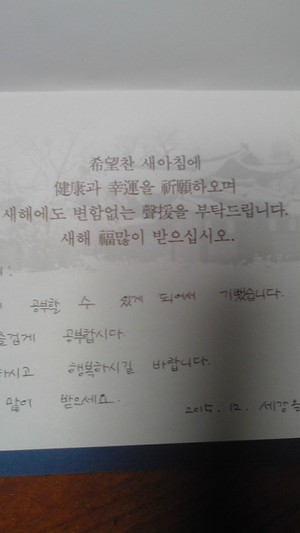 希望찬 새아침에
健康과 幸運을 祈願하오며
새해에도 변함없는 聲援을 부탁드립니다.
새해 福많이 받으십시오.
:
공부할 수 있게 되어서 기뻤습니다.
즐겁게 공부합시다.
하시고 행복하시길 바랍니다.
많이 받으세요.
2015. 12. 세강